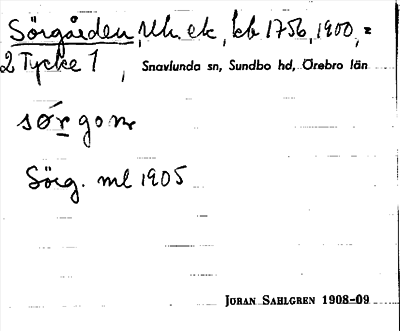 Sörgården, Uh. ek, kb 1756, 1900, =
2 Tycke 1, Snavlunda sn, Sundbo hd, Örebro län
sǿr gonr
Sörg. ml 1905
JÖRAN SAHLGREN 1908-09